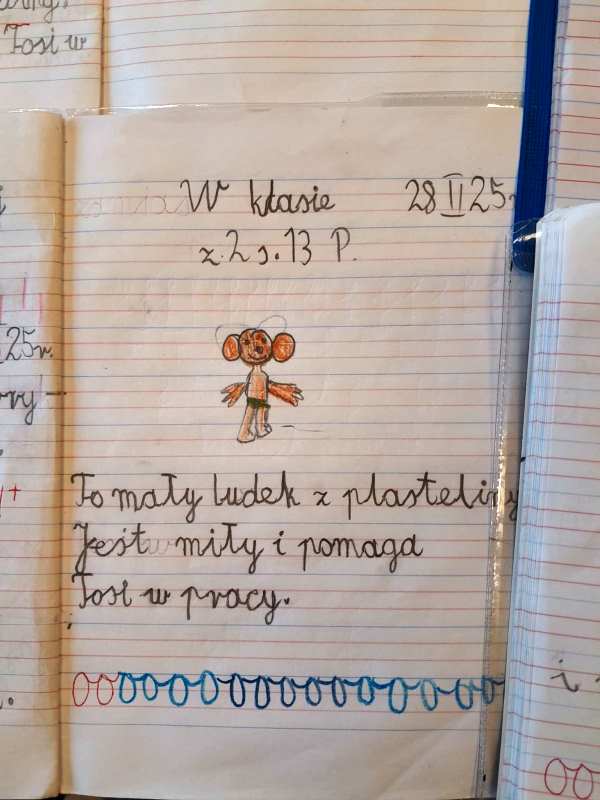 Tosi w
W klasie 28 II 25r.
z.2 s.13 P.
25r.
To mały ludek z plasteliny
Jest miły i pomaga
Tosi w pracy.
i